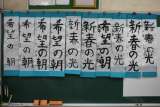 希望の朝
希望の朝
希望の朝
新春の光
希望の朝
新春の光
新春の光
新春の光